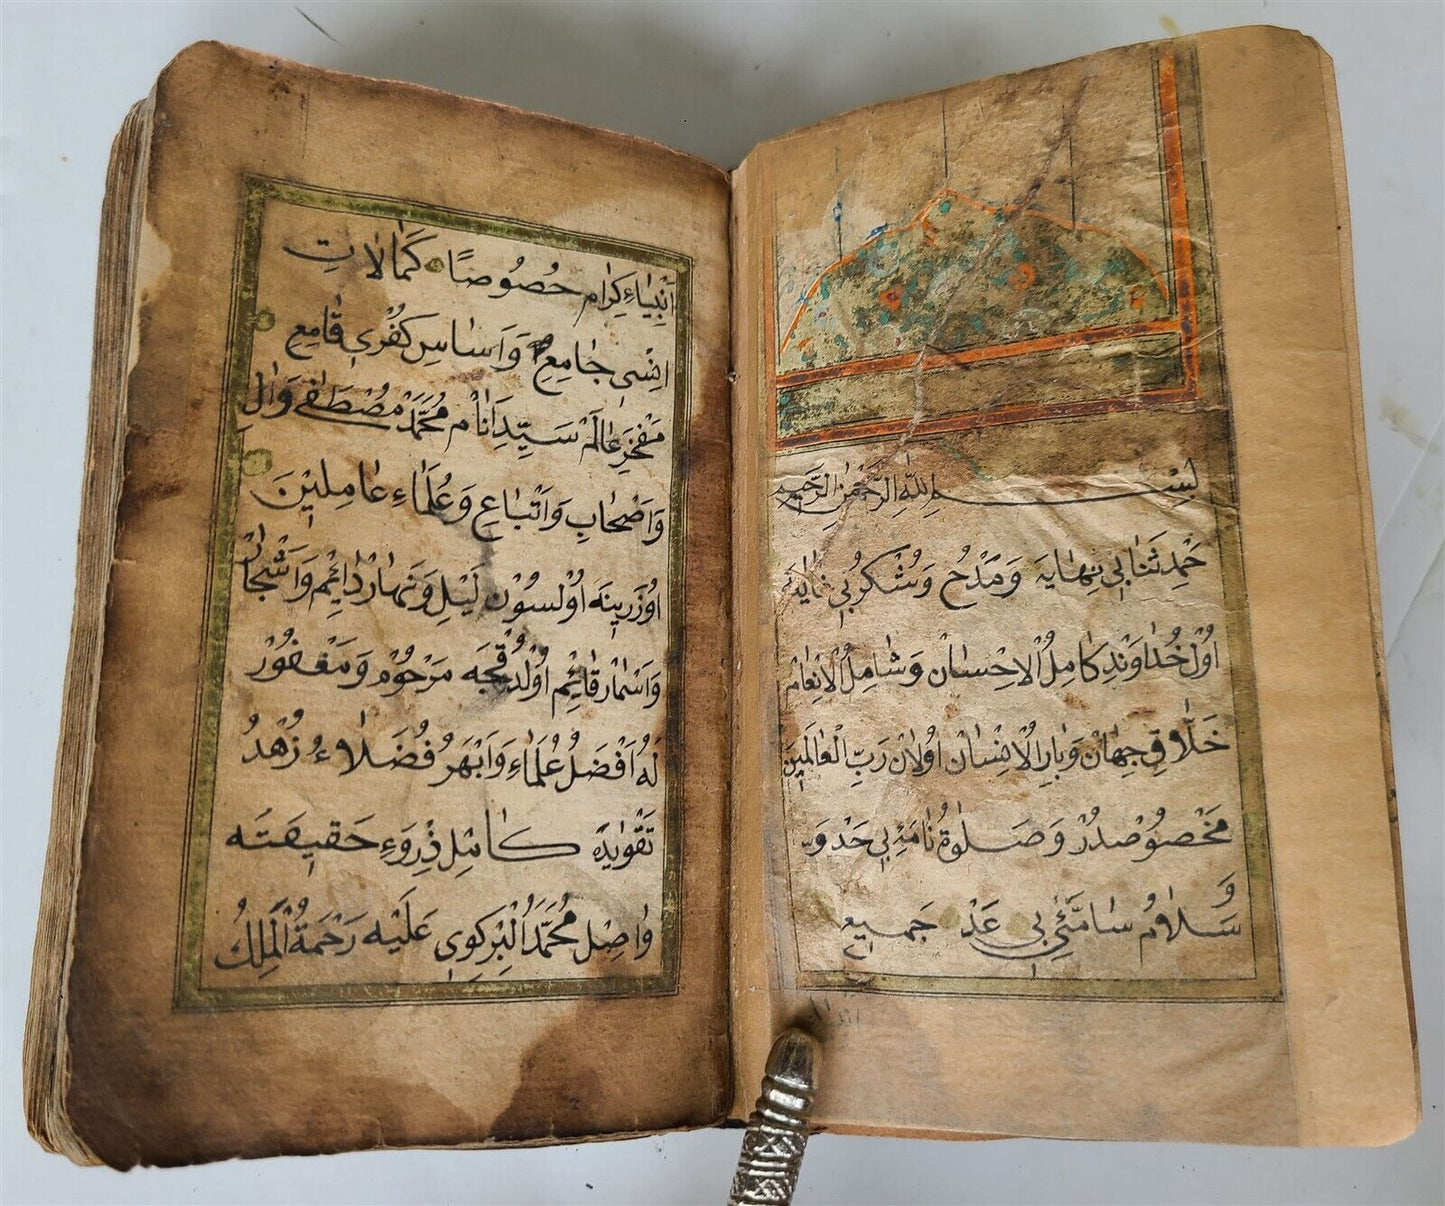 بسم الله الرحمن الرحيم
حَمْدِ ثَنَا بي نِهايَه وَمَدْحُ وَشُكر بُي غايَه
اوُلْ خُداوَنْدِ كامِلُ الْاِحْسان وَشامِلُ الْاِنْعامْ
خَلّاقِ جِهانْ وَبارِ الْاِنْسانْ اوُلانْ رَبِّ الْعالَمينَ
مَخْصوُصْدُرْ وَصَلٰوةُ نامَه بي حَدْ وَ
وَسَلامُ سامَّئِ بي عَدْ جَميعِ
اَنْبِياءِ كِرام خُصُوصًا كَمالاتِ
اِنْسي جامِعْ وَاَساسِ كُفْري قامِعِ
مَفْخَرِ عالَمْ سَيِّدِ اَنامْ مُحَمَّدْ مُصْطَفٰى وَالِ
وَاَصْحابِ وَاَتْباعِ وَعُلَماءِ عامِلينَ
اوُزَرينَه اوُلْسوُنْ لَيْلِ وَنَهارْ دائِمْ وَاَشْجارْ
وَاَثْمارْ قائِمْ اوُلْدُقْجَه مَرْحوُمْ وَمَغْفوُرْ
لَهُ اَفْضَلُ عُلَماءِ وَاَبْهَرُ فُضَلاءُ زُهْدُ
تَقْوايَه كامِلِ ذِرْوَءِ حَقيقَتَه
واصِلْ مُحَمَّدُ الْبِركَوي عَلَيْه رَحْمَةُ الْمَلِكُ